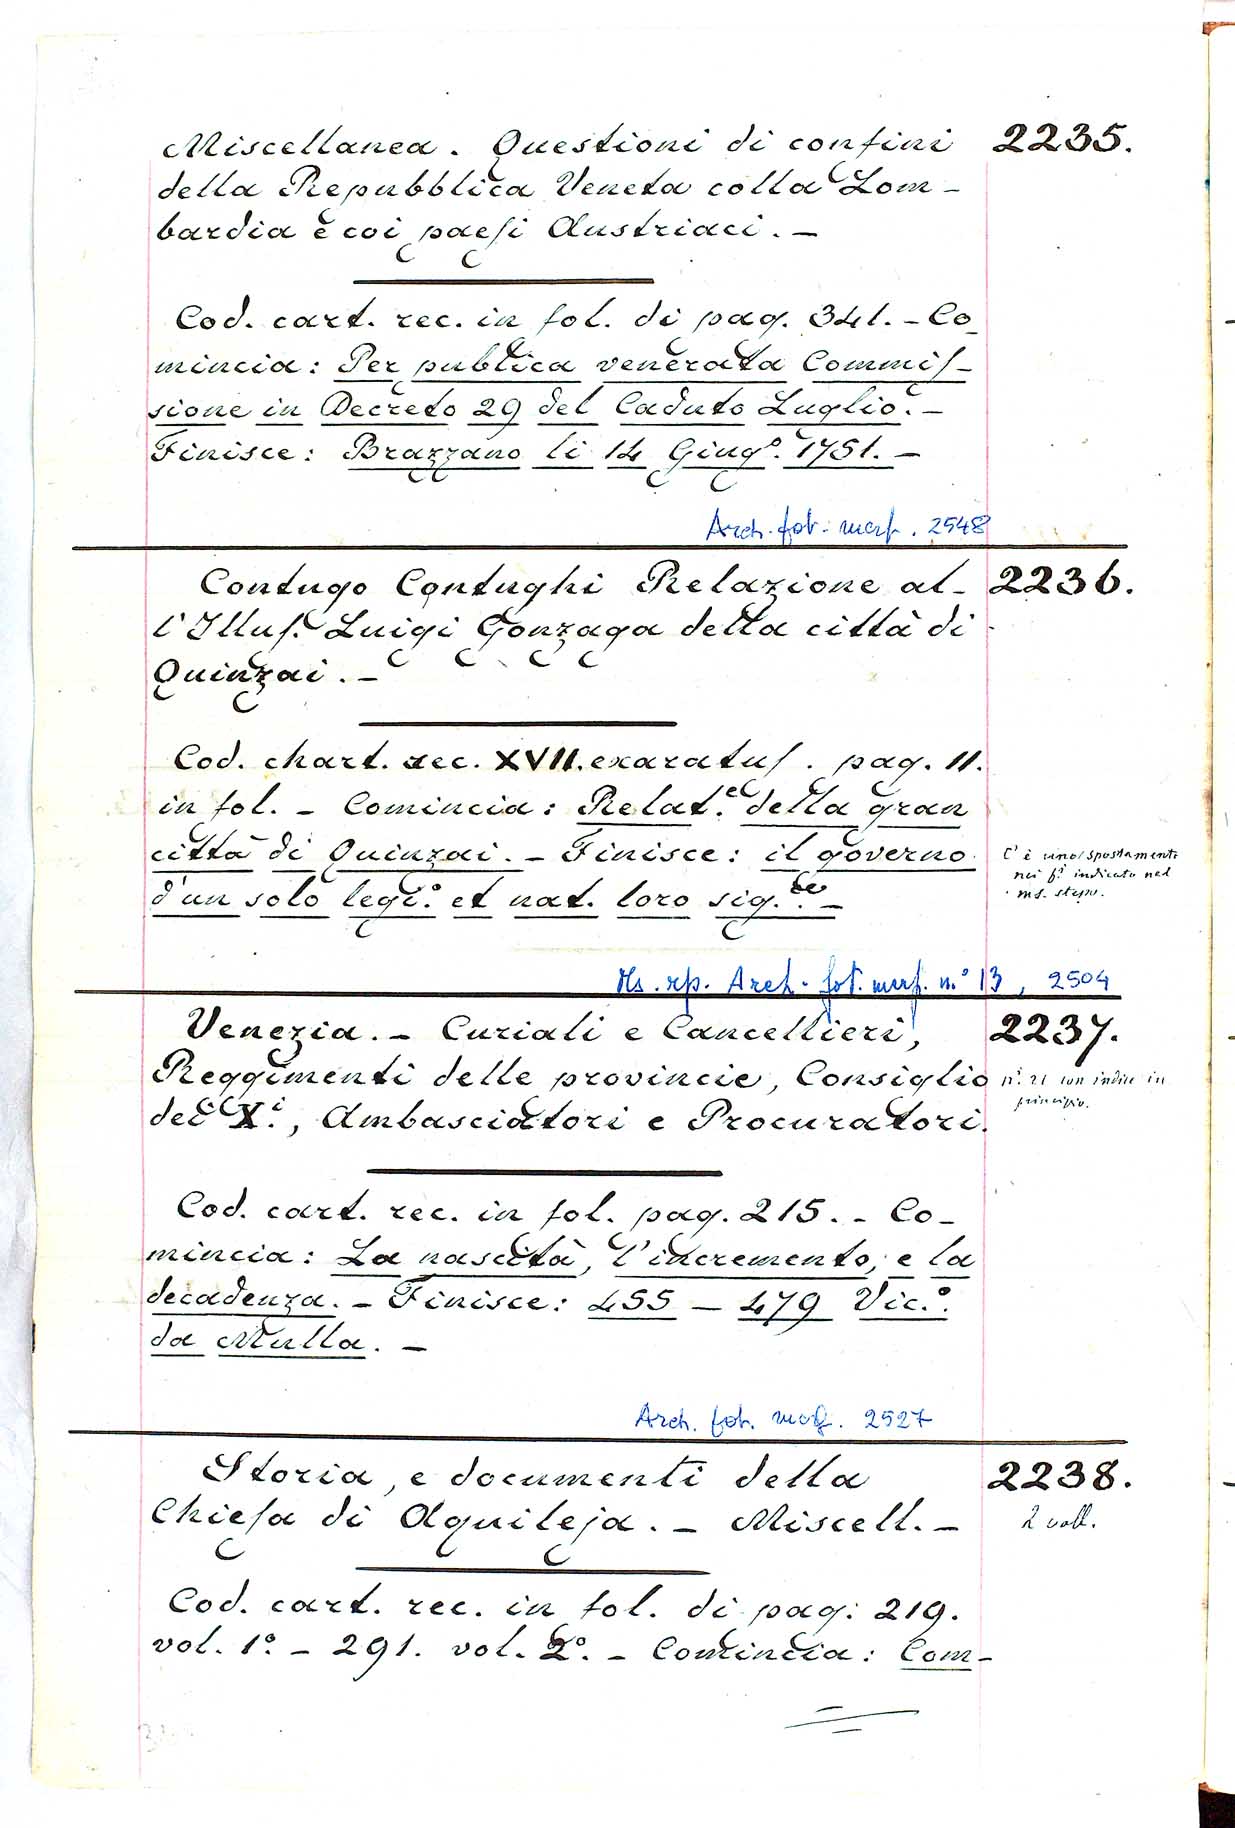 Miscellanea. Questioni di confini 2235.
della Repubblica Veneta colla Lom-
bardia e coi paesi Austriaci. -
Cod. cart. rec. in fol. di pag. 341. - Co-
mincia: Per publica venerata Commis-
sione in Decreto 29 del Caduto Luglio. -
Finisce: Brazzano li 14 Giugº. 1751. -
Arch. fot. marf. 2548
Contugo Contughi Relazione al- 2236.
l'Illus. Luigi Gonzaga della città di
Quinzai. -
Cod. chart. sec. XVII. exaratus. pag. 11.
in fol. - Comincia: Relat.e della gran
città di Quinzai. - Finisce: il governo
d'un solo legº. et nat. loro sig.re -
C'è uno spostamento
nei fº indicato nel
ms. stesso.
Ms. rip. Arch. fot. marf. n.º 13, 2504
Venezia. - Curiali e Cancellieri, 2237.
Reggimenti delle provincie, Consiglio
dei X.i, Ambasciatori e Procuratori.
nº. 21 con indice in
principio.
Cod. cart. rec. in fol. pag. 215. - Co-
mincia: La nascita, l'incremento, e la
decadenza. - Finisce: 455 - 479 Vic.º
da Mulla. -
Arch. fot. marf. 2527
Storia, e documenti della 2238.
Chiesa di Aquileja. - Miscell. - 2 voll.
Cod. cart. rec. in fol. di pag: 219.
vol. 1º. - 291. vol. 2º. - Comincia: Com-